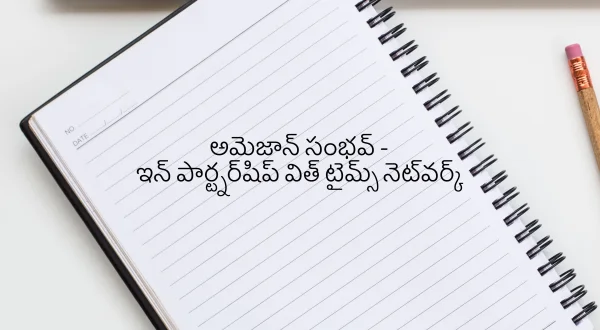 NO
DATE
అమెజాన్ సంభవ్ -
ఇన్ పార్ట్నర్‌షిప్ విత్ టైమ్స్ నెట్‌వర్క్